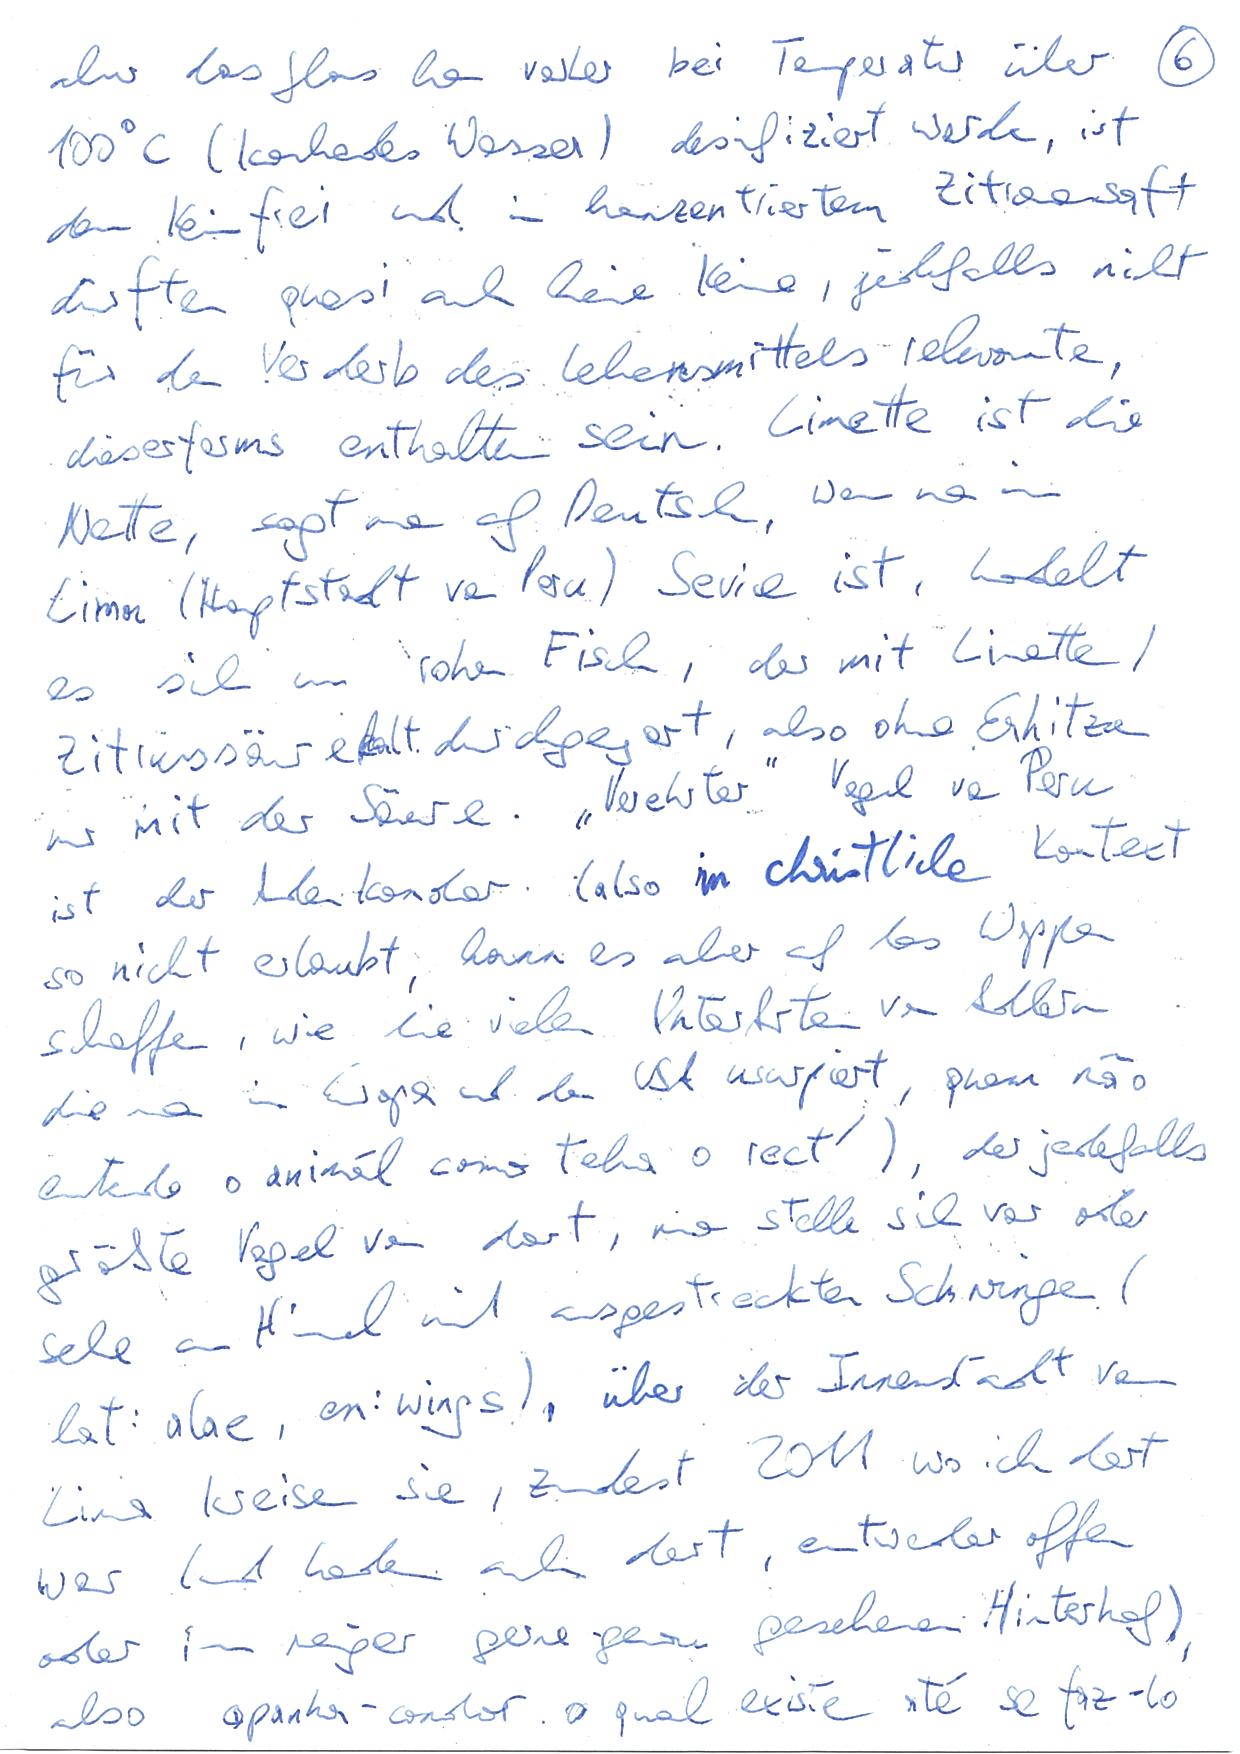 aber das Glas kann vorher bei Temperatur über 6
100°C (kochendes Wasser) desinfiziert werden, ist
dann keimfrei und in konzentriertem Zitronensaft
dürften quasi auch keine Keime, jedenfalls nicht
für den Verderb des Lebensmittels relevante,
dieserforms enthalten sein. Limette ist die
Nette, sagt man auf Deutsch, wenn man in
Lima (Hauptstadt von Peru) Sevice ist, handelt
es sich um rohen Fisch, der mit Limette/
Zitrussäure kalt durchgegart, also ohne Erhitzen
nur mit der Säure. „Verehrter" Vogel von Peru
ist der Andenkondor. (also im christlichen Kontext
so nicht erlaubt, kann es aber auf das Wappen
schaffen, wie die vielen UnterArten von Adlern
die man in Europa und den USA usurpiert, quem não
entende o animál como tenha o rect'), der jedenfalls
größte Vogel von dort, man stelle sich vor oder
sehe am Himmel mit ausgestreckten Schwingen (
lat: alae, en: wings), über der Innenstadt von
Lima kreisen sie, zumindest 2011 wo ich dort
war (und haben auch dort, entweder offen
oder im gerne gesehenen Hinterhof),
also apanha-condor. o qual existe até se faz-lo